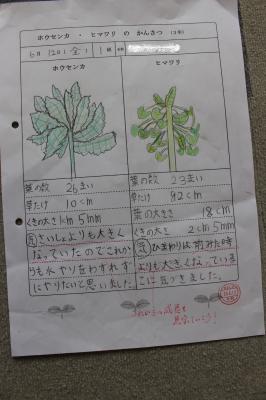 ホウセンカ・ヒマワリ の かんさつ (3年)
6月12日(金) 1組 名前
ホウセンカ
ヒマワリ
葉の数 26まい
草たけ 10cm
くきの太さ 1cm 5mm
さいしょよりも大きく
なっていたのでこれか
らも水やりをわすれず
にやりたいと思いました。
葉の数 23まい
草たけ 92cm
葉の大きさ 18cm
くきの大さ 2cm 5mm
ひまわりは前みた時
よりも大きくなっている
ことに気づきました。